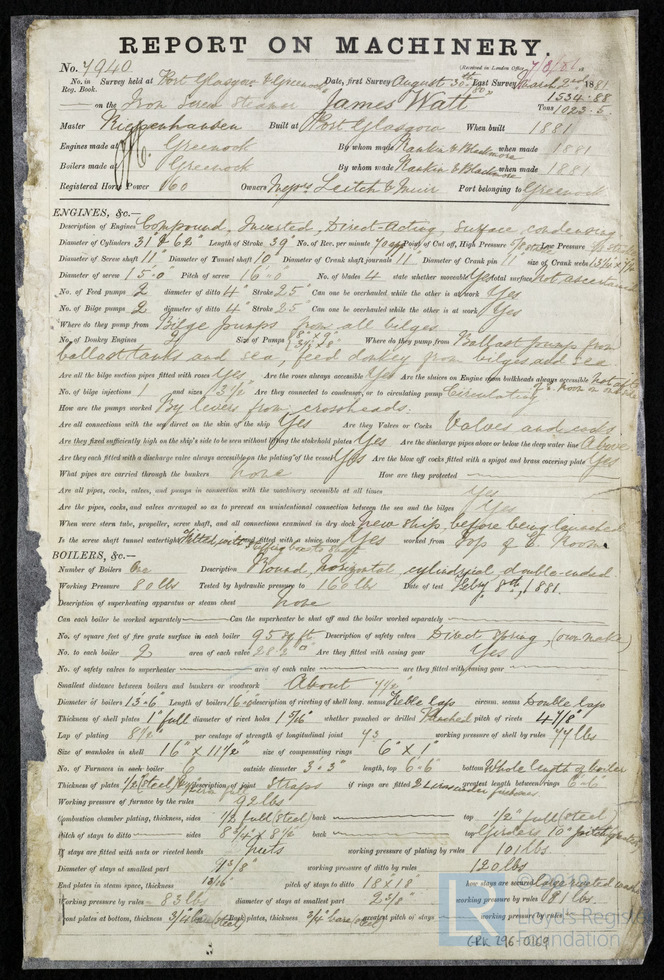 REPORT ON MACHINERY.
No. 7940 (Received in London Office 7/3/81
No. in Reg. Book. Survey held at Port Glasgow & Greenock Date, first Survey August 30th 80 Last Survey March 2nd 1881
on the Iron Screw Steamer James Watt Tons 1534.88 1023.5
Master Built at Port Glasgow When built 1881
Engines made at Greenock By whom made Rankin & Blackmore when made 1881
Boilers made at Greenock By whom made Rankin & Blackmore when made 1881
Registered Horse Power 160 Owners Messrs Leitch & Muir Port belonging to Greenock
ENGINES, &c.—
Description of Engines Compound, Inverted, Direct-Acting, Surface condensing
Diameter of Cylinders 31" & 62" Length of Stroke 39" No. of Rev. per minute 70 Point of Cut off, High Pressure Low Pressure
Diameter of Screw shaft 11" Diameter of Tunnel shaft 10" Diameter of Crank shaft journals 11" Diameter of Crank pin 11" size of Crank webs
Diameter of screw 15'-0" Pitch of screw 16'-0" No. of blades 4 state whether moveable Yes total surface not ascertained
No. of Feed pumps 2 diameter of ditto 4" Stroke 25" Can one be overhauled while the other is at work Yes
No. of Bilge pumps 2 diameter of ditto 4" Stroke 25" Can one be overhauled while the other is at work Yes
Where do they pump from Bilge pumps from all bilges.
No. of Donkey Engines 2 Size of Pumps Where do they pump from Ballast pump from
ballast tanks and sea, feed donkey from bilges and sea
Are all the bilge suction pipes fitted with roses Yes Are the roses always accessible Yes Are the sluices on Engine room bulkheads always accessible
No. of bilge injections 1 and sizes 3½" Are they connected to condenser, or to circulating pump Circulating
How are the pumps worked By levers from crossheads.
Are all connections with the sea direct on the skin of the ship Yes Are they Valves or Cocks Valves and cocks
Are they fixed sufficiently high on the ship's side to be seen without lifting the stokehold plates Yes Are the discharge pipes above or below the deep water line Above
Are they each fitted with a discharge valve always accessible on the plating of the vessel Yes Are the blow off cocks fitted with a spigot and brass covering plate Yes
What pipes are carried through the bunkers none How are they protected
Are all pipes, cocks, valves, and pumps in connection with the machinery accessible at all times Yes
Are the pipes, cocks, and valves arranged so as to prevent an unintentional connection between the sea and the bilges Yes
When were stern tube, propeller, screw shaft, and all connections examined in dry dock New ship, before being launched
Is the screw shaft tunnel watertight and fitted with a sluice door Yes worked from Top of E. Room
BOILERS, &c.—
Number of Boilers One Description Round, horizontal, cylindrical, double-ended
Working Pressure 80 lbs Tested by hydraulic pressure to 160 lbs Date of test Feby 8th, 1881.
Description of superheating apparatus or steam chest none
Can each boiler be worked separately Can the superheater be shut off and the boiler worked separately
No. of square feet of fire grate surface in each boiler 95 sq ft. Description of safety valves Direct spring, (own make)
No. to each boiler 2 area of each valve 28.2 Are they fitted with easing gear Yes
No. of safety valves to superheater area of each valve are they fitted with easing gear
Smallest distance between boilers and bunkers or woodwork About 7½"
Diameter of boilers 13'-6" Length of boilers 16'-0" description of riveting of shell long. seams Treble Lap circum. seams Double Lap
Thickness of shell plates 1" full diameter of rivet holes 1 5/16" whether punched or drilled Punched pitch of rivets 4 7/8"
Lap of plating 8½" per centage of strength of longitudinal joint 73 working pressure of shell by rules 77 lbs
Size of manholes in shell 16" x 11½" size of compensating rings 6" x 1"
No. of Furnaces in each boiler 6 outside diameter 3'-3" length, top 6'-6" bottom Whole length of boiler
Thickness of plates 1/2" (Steel) description of joint Straps if rings are fitted greatest length between rings 6'-6"
Working pressure of furnace by the rules 92 lbs
Combustion chamber plating, thickness, sides 1/2" full (Steel) back top 1/2" full (steel)
Pitch of stays to ditto sides 8¾" x 8½" back top Girders 10"
If stays are fitted with nuts or riveted heads nuts working pressure of plating by rules 101 lbs.
Diameter of stays at smallest part 1 3/8" working pressure of ditto by rules 120 lbs
End plates in steam space, thickness 13/16" pitch of stays to ditto 18 x 18" how stays are secured
Working pressure by rules 83 lbs diameter of stays at smallest part 2 3/8" working pressure by rules 81 lbs.
Front plates at bottom, thickness 3/4" bare (Steel) Back plates, thickness 3/4" bare (steel) greatest pitch of stays working pressure by rules
© 2019
Lloyd's Register
Foundation
LR
GRK 296-0169